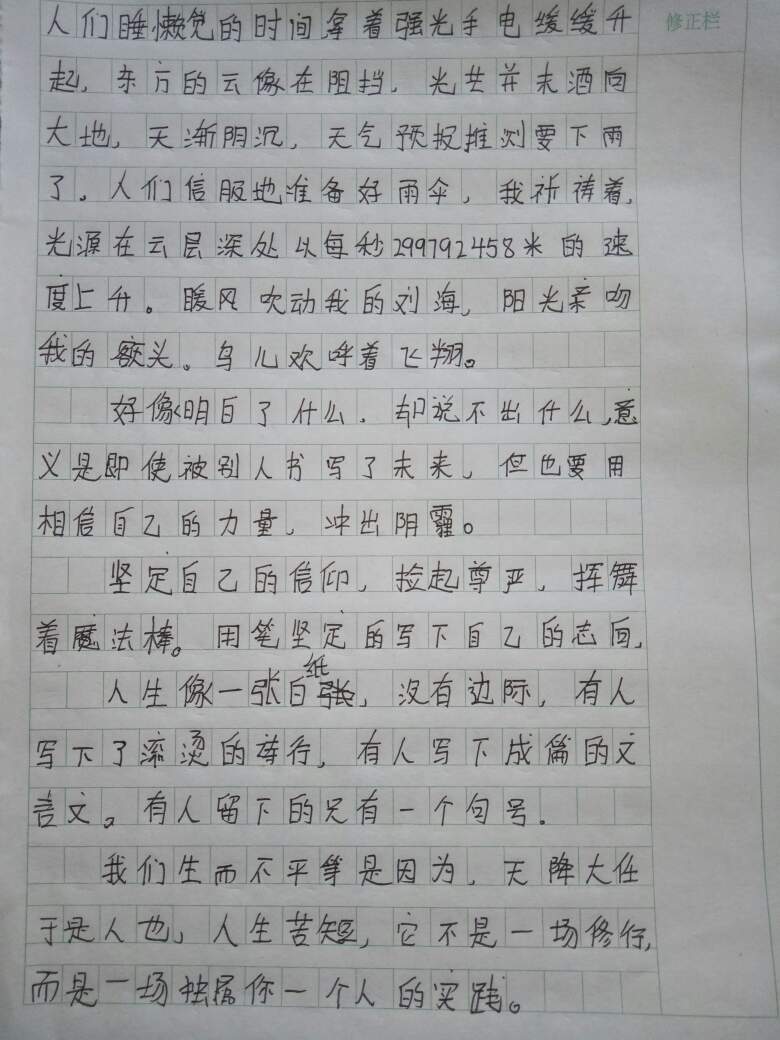 人们睡懒觉的时间拿着强光手电缓缓升
修正栏
起，东方的云像在阻挡，光芒并未洒向
大地，天渐阴沉，天气预报推测要下雨
了。人们信服地准备好雨伞，我祈祷着，
光源在云层深处以每秒299792458米的速
度上升。暖风吹动我的刘海，阳光亲吻
我的额头。鸟儿欢呼着飞翔。
好像明白了什么．却说不出什么，意
义是即使被别人书写了未来，但也要用
相信自己的力量，冲出阴霾。
坚定自己的信仰，捡起尊严，挥舞
着魔法棒。用笔坚定的写下自己的志向，
人生像一张白纸，没有边际，有人
写下了滚烫的诗行，有人写下成篇的文
言文。有人留下的只有一个句号．
我们生而不平等是因为，天降大任
于是人也，人生苦短，它不是一场修行，
而是一场独属你一个人的实践。